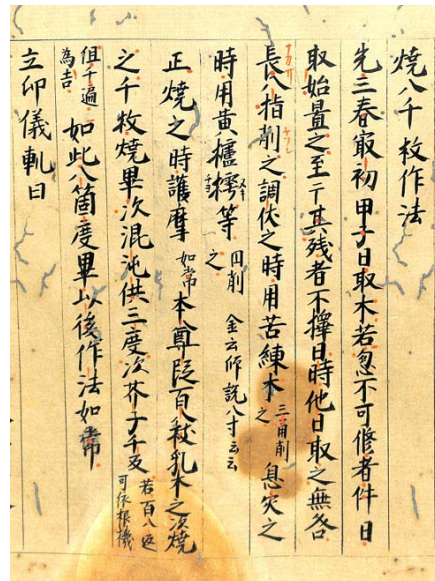 燒八千枚作法
先三春最初甲子日取木若忽不可修者件日
取始量之至于其残者不擇日時他日取之無咎
長八指削之調伏之時用苦練木之 三角削 息灾之
時用黄櫨樗等之 四削 金云師説八寸云云
正燒之時護摩如常本尊段百八秡乳木之次燒
之千枚燒畢次混沌供三度次芥子千反 若百八返可依根機
但千遍為吉 如此八箇度畢以後作法如常
立印儀軌曰